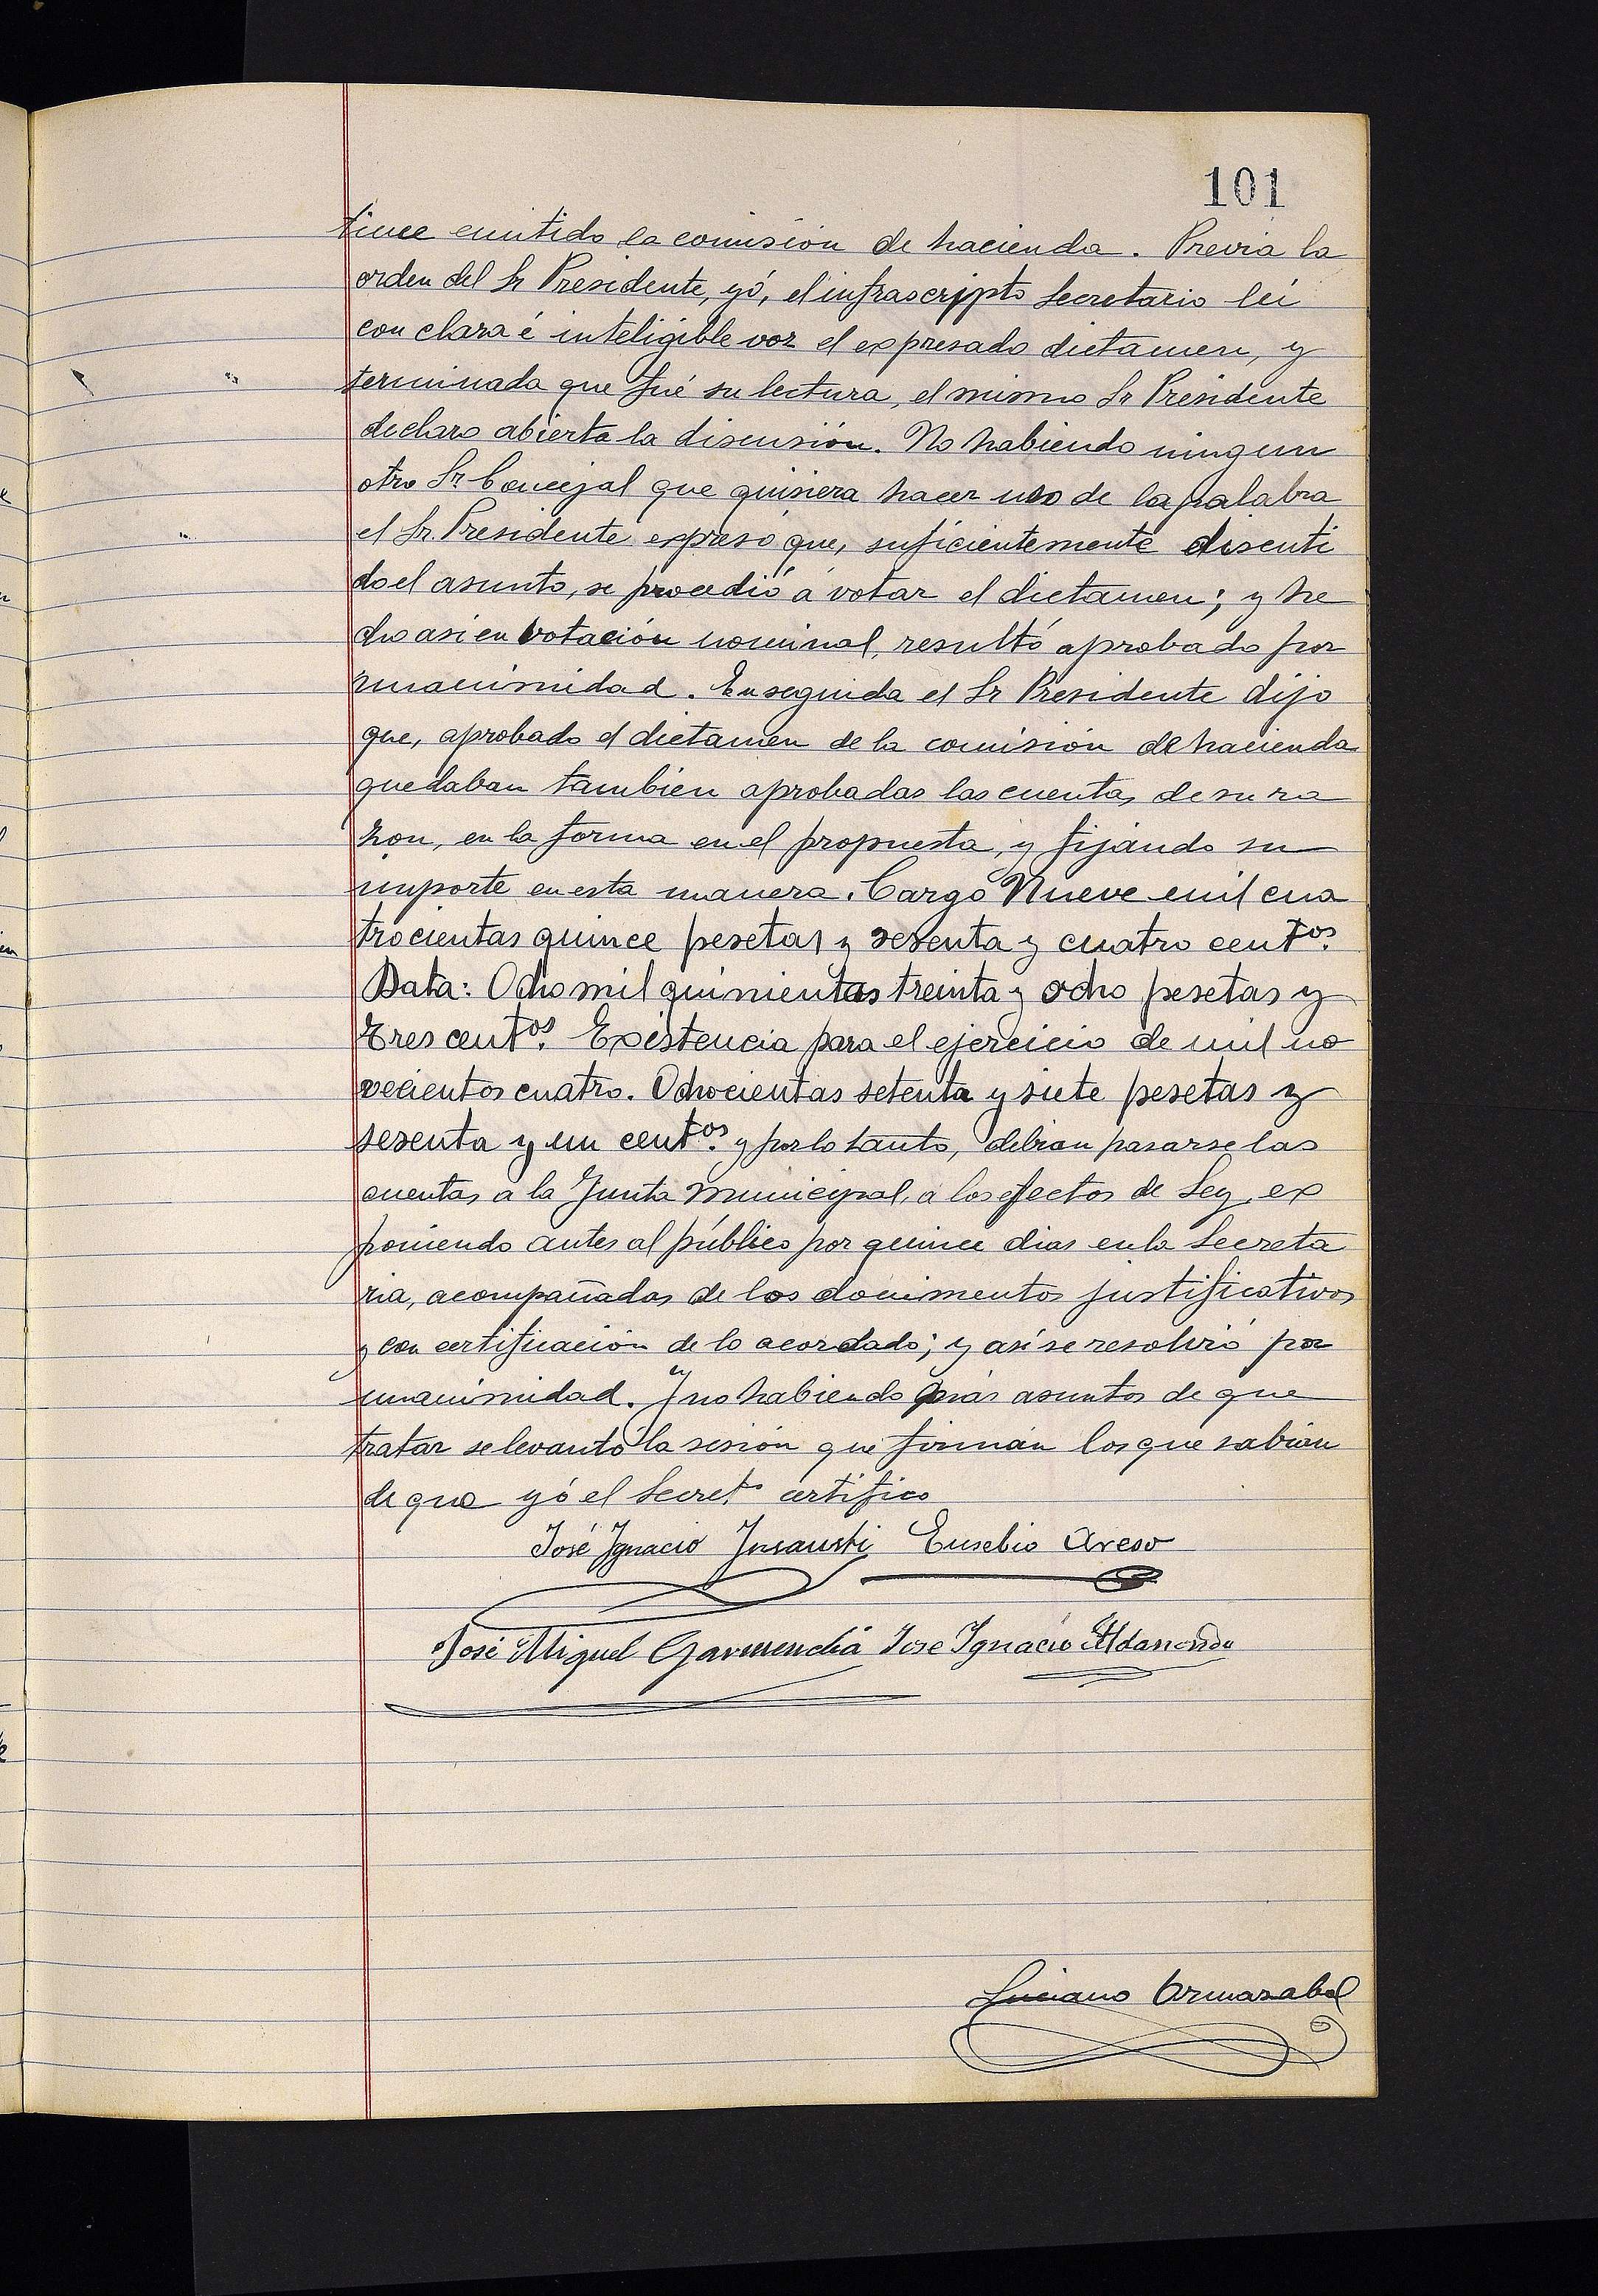 101
tiene emitido la comisión de hacienda. Previa la
orden del Sr Presidente, yó, el infrascripto Secretario leí
con clara é inteligible voz el expresado dictamen, y
terminada que fué su lectura, el mismo Sr Presidente
declaro abierta la discusión. No habiendo ningun
otro Sr. Concejal que quisiera hacer uso de la palabra
el Sr. Presidente expresó que, suficientemente discuti
do el asunto, se procedió á votar el dictamen; y he
cho asi en votación nominal, resultó aprobado por
unanimidad. Enseguida el Sr Presidente dijo
que, aprobado el dictamen de la comisión de hacienda
quedaban tambien aprobadas las cuentas de su ra
zon, en la forma en el propuesta, y fijando su
importe en esta manera. Cargo Nueve mil cua
trocientas quince pesetas y sesenta y cuatro centos.
Data: Ocho mil quinientas treinta y ocho pesetas y
tres centos. Existencia para el ejercicio de mil no
vecientos cuatro. Ochocientas setenta y siete pesetas y
sesenta y un centos. y por lo tanto, debian pasarse las
cuentas a la Junta Municipal, a los efectos de Ley, ex
poniendo antes al público por quince dias en la Secreta
ria, acompañadas de los documentos justificativos
y con certificación de lo acordado; y así se resolvió por
unanimidad. Y no habiendo más asuntos de que
tratar se levantó la sesión que firmán los que sabian
de que yó el Secreto certifico
José Ignacio Insausti Eusebio Areso
José Miguel Garmendia José Ignacio Aldanondo
Luciano Ormazabal